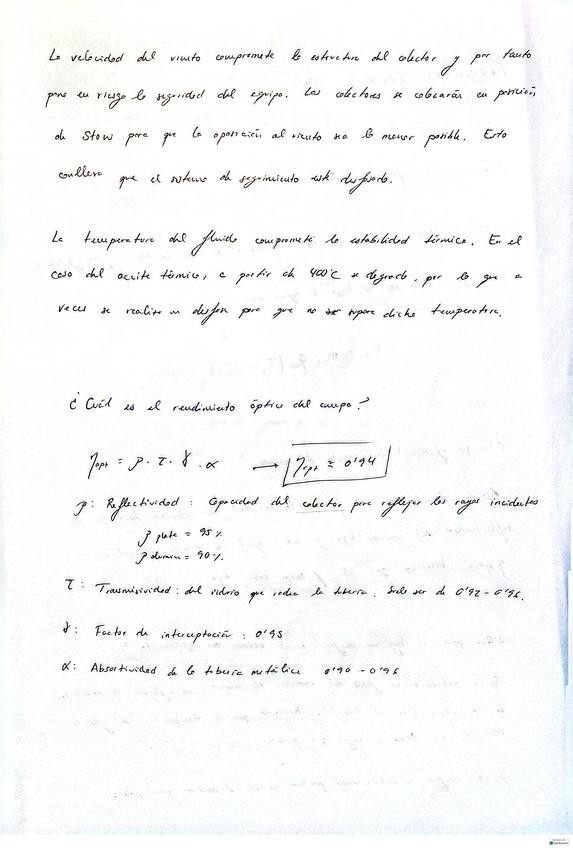 La velocidad del viento compromete la estructura del colector y por tanto
pone en riesgo la seguridad del equipo. Los colectores se colocarán en posición
de Stow para que la oposición al viento sea la menor posible. Esto
conlleva que el sistema de seguimiento esté desfasado.
La temperatura del fluido compromete la estabilidad térmica. En el
caso del aceite térmico, a partir de 400°C se degrada, por lo que a
veces se realiza un desfase para que no supere dicha temperatura.
¿Cuál es el rendimiento óptico del campo?
ηopt = ρ · τ · γ · α → ηopt ≈ 0'94
ρ: Reflectividad: Capacidad del colector para reflejar los rayos incidentes
ρ plata = 95%
ρ alumin = 90%.
τ: Transmisividad: del vidrio que rodea la tubería. Suele ser de 0'92 - 0'96.
γ: Factor de interceptación: 0'95
α: Absortividad de la tubería metálica 0'90 - 0'96